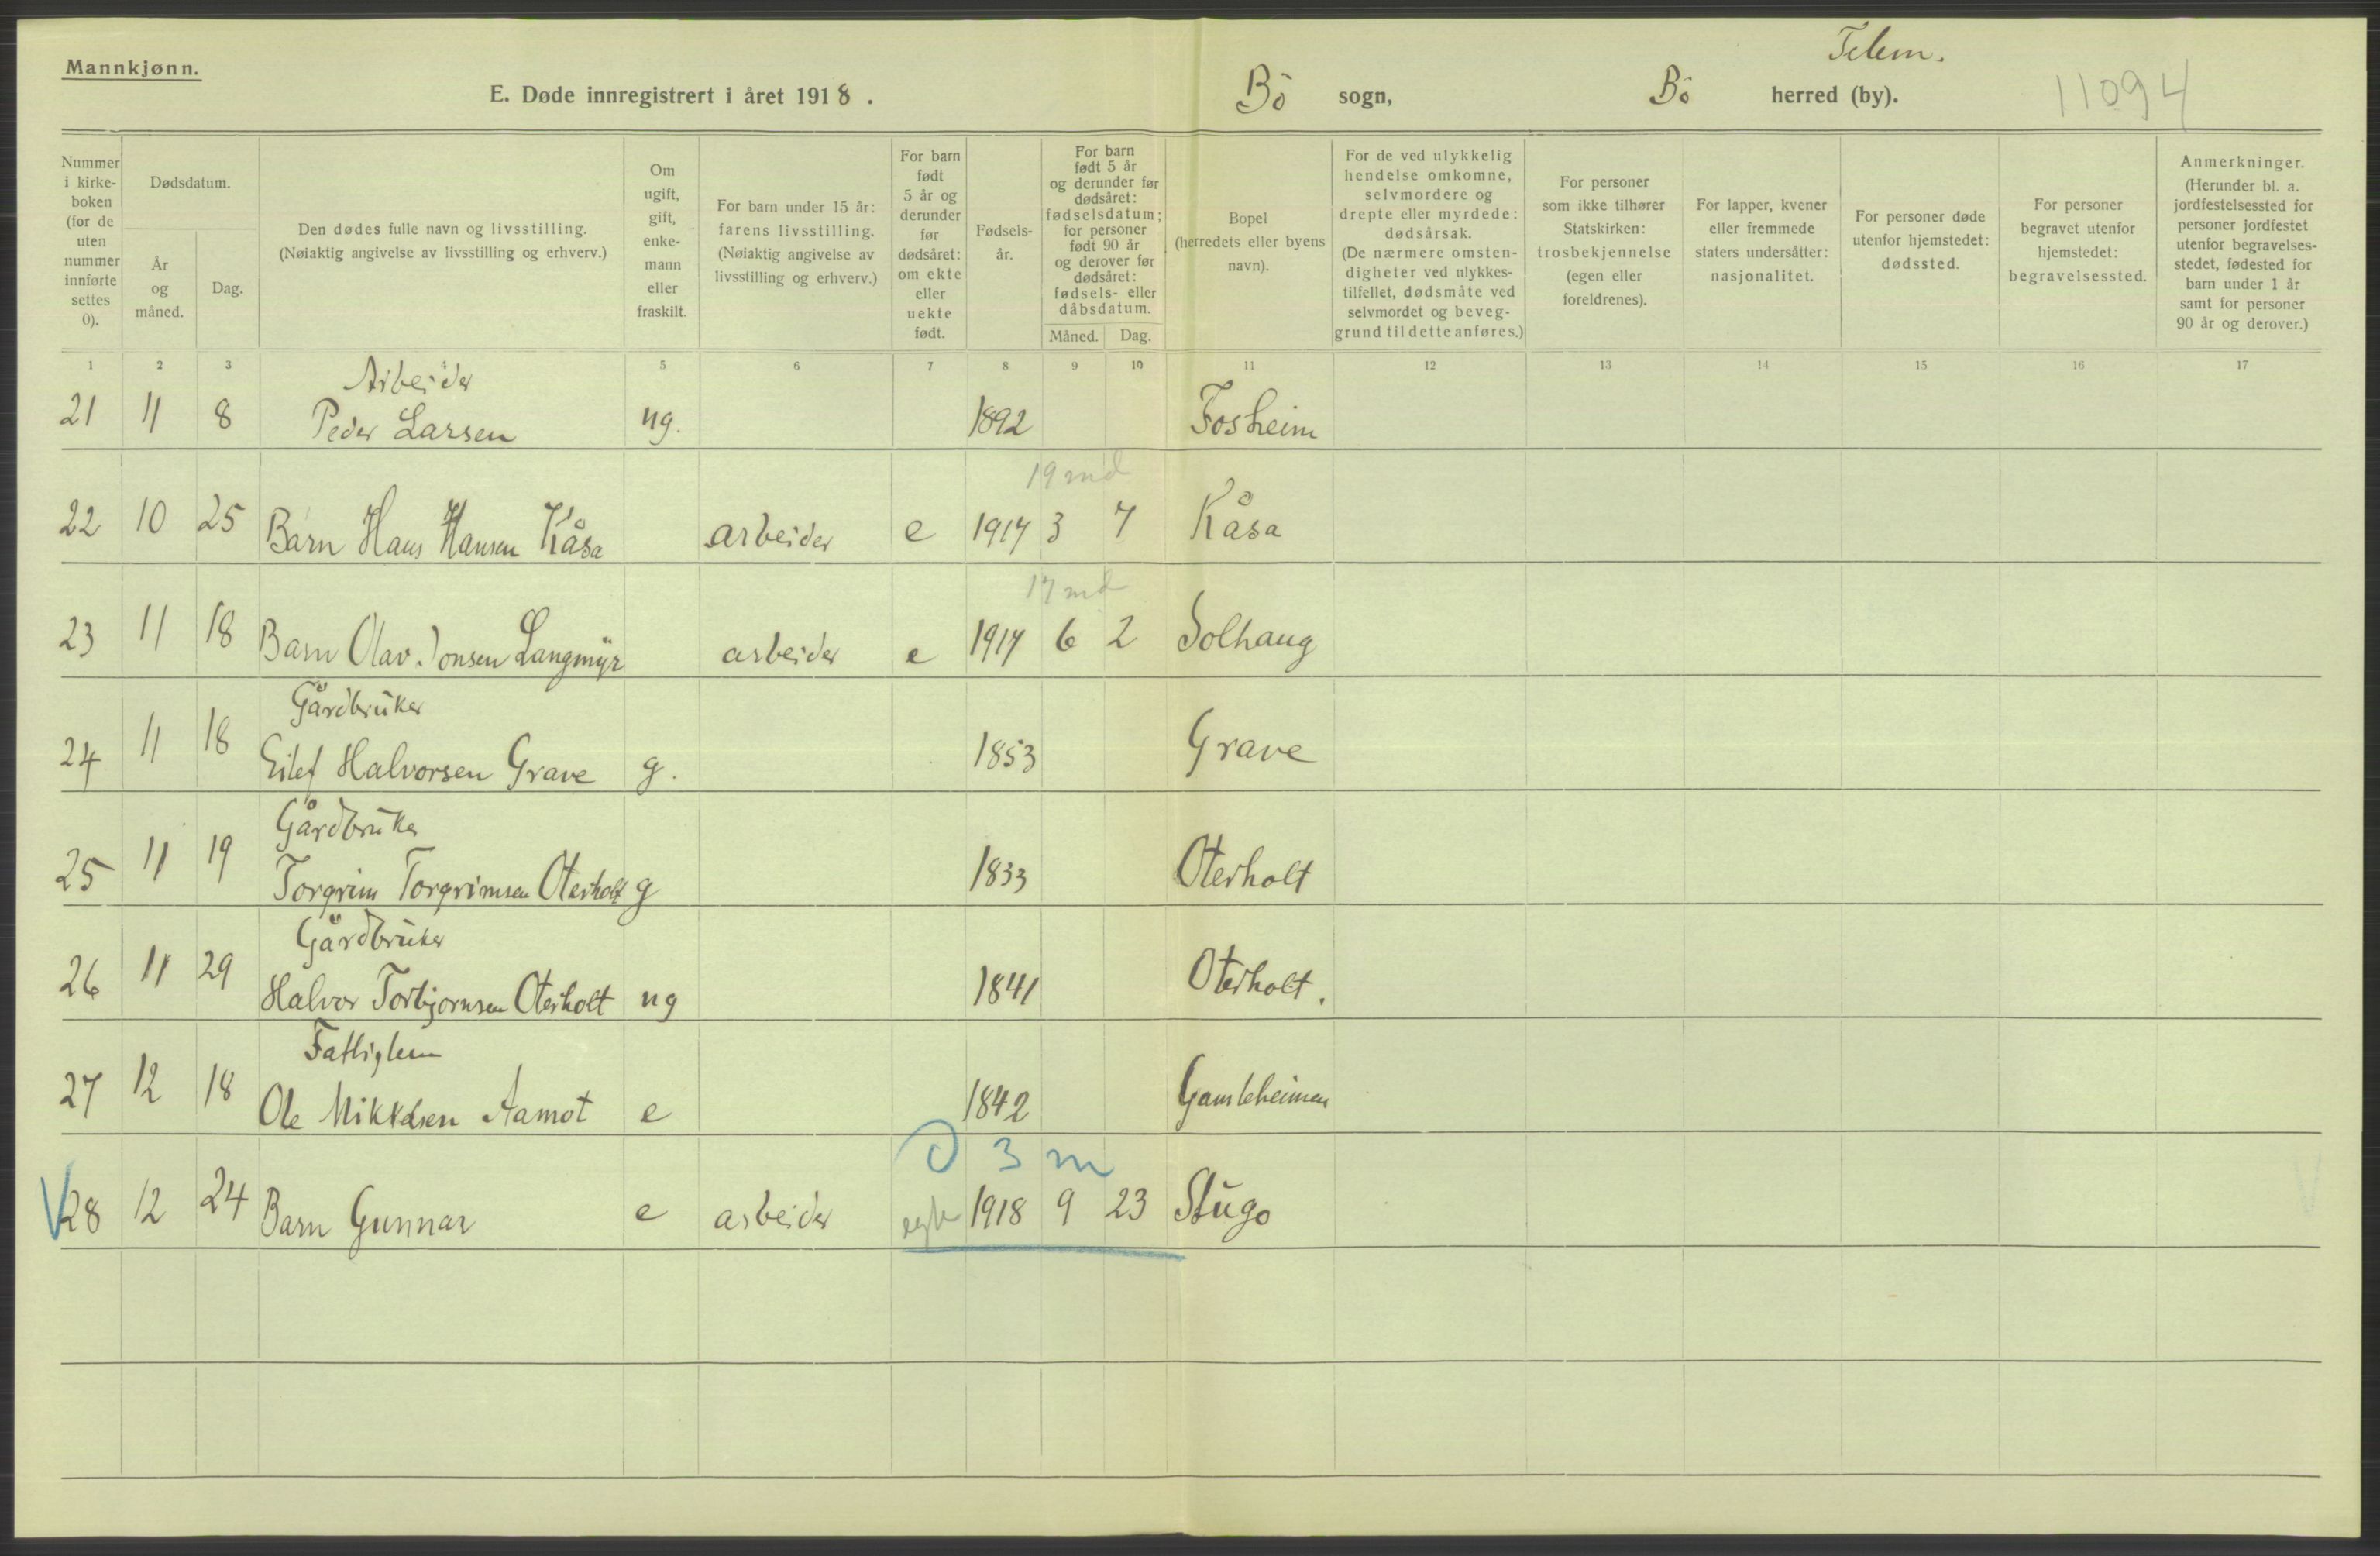 Mannkjønn.
E. Døde innregistrert i året 1918.
Bö sogn,
Bö herred (by).
Telem.
11094
Nummer i kirke-boken (for de uten nummer innførte settes 0).
Dødsdatum.
År og måned.
Dag.
Den dødes fulle navn og livsstilling.
(Nøiaktig angivelse av livsstilling og erhverv.)
Om ugift, gift, enke-mann eller fraskilt.
For barn under 15 år: farens livsstilling.
(Nøiaktig angivelse av livsstilling og erhverv.)
For barn født 5 år og derunder før dødsåret: om ekte eller uekte født.
Fødsels-år.
For barn født 5 år og derunder før dødsåret: fødselsdatum; for personer født 90 år og derover før dødsåret: fødsels- eller dåbsdatum.
Måned. Dag.
Bopel (herredets eller byens navn).
For de ved ulykkelig hendelse omkomne, selvmordere og drepte eller myrdede: dødsårsak.
(De nærmere omsten-digheter ved ulykkes-tilfellet, dødsmåte ved selvmordet og beveg-grund til dette anføres.)
For personer som ikke tilhører Statskirken: trosbekjennelse (egen eller foreldrenes).
For lapper, kvener eller fremmede staters undersåtter: nasjonalitet.
For personer døde utenfor hjemstedet: dødssted.
For personer begravet utenfor hjemstedet: begravelsessted.
Anmerkninger.
(Herunder bl. a. jordfestelsessted for personer jordfestet utenfor begravelses-stedet, fødested for barn under 1 år samt for personer 90 år og derover.)
1 2 3 5 6 7 8 9 10 11 12 13 14 15 16 17
Arbeider
21 11 8 Peder Larsen ug. 1892 Fosheim
19 md
22 10 25 Barn Hans Hansen Kåsa arbeider e 1917 3 7 Kåsa
17 md
23 11 18 Barn Olav Jonsen Langmyr arbeider e 1917 6 2 Solhaug
Gårdbruker
24 11 18 Eilef Halvorsen Grave g. 1853 Grave
Gårdbruker
25 11 19 Torgrim Torgrimsen Oterholt g 1833 Oterholt
Gårdbruker
26 11 29 Halvor Torbjornsen Oterholt ug 1841 Oterholt.
Fattiglem
27 12 18 Ole Mikkelsen Aamot e 1842 Gamleheimen
0 3 m
28 12 24 Barn Gunnar e arbeider egte 1918 9 23 Stugo